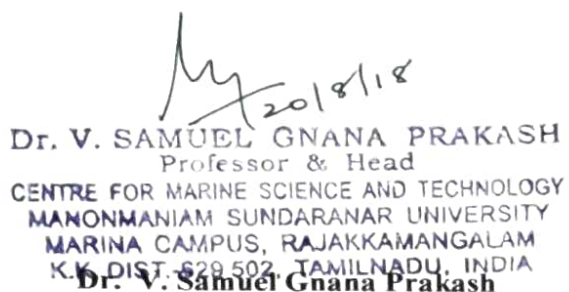 20/8/18
Dr. V. SAMUEL GNANA PRAKASH
Professor & Head
CENTRE FOR MARINE SCIENCE AND TECHNOLOGY
MANONMANIAM SUNDARANAR UNIVERSITY
MARINA CAMPUS, RAJAKKAMANGALAM
K.K. DIST-629 502, TAMILNADU, INDIA
Dr. V. Samuel Gnana Prakash